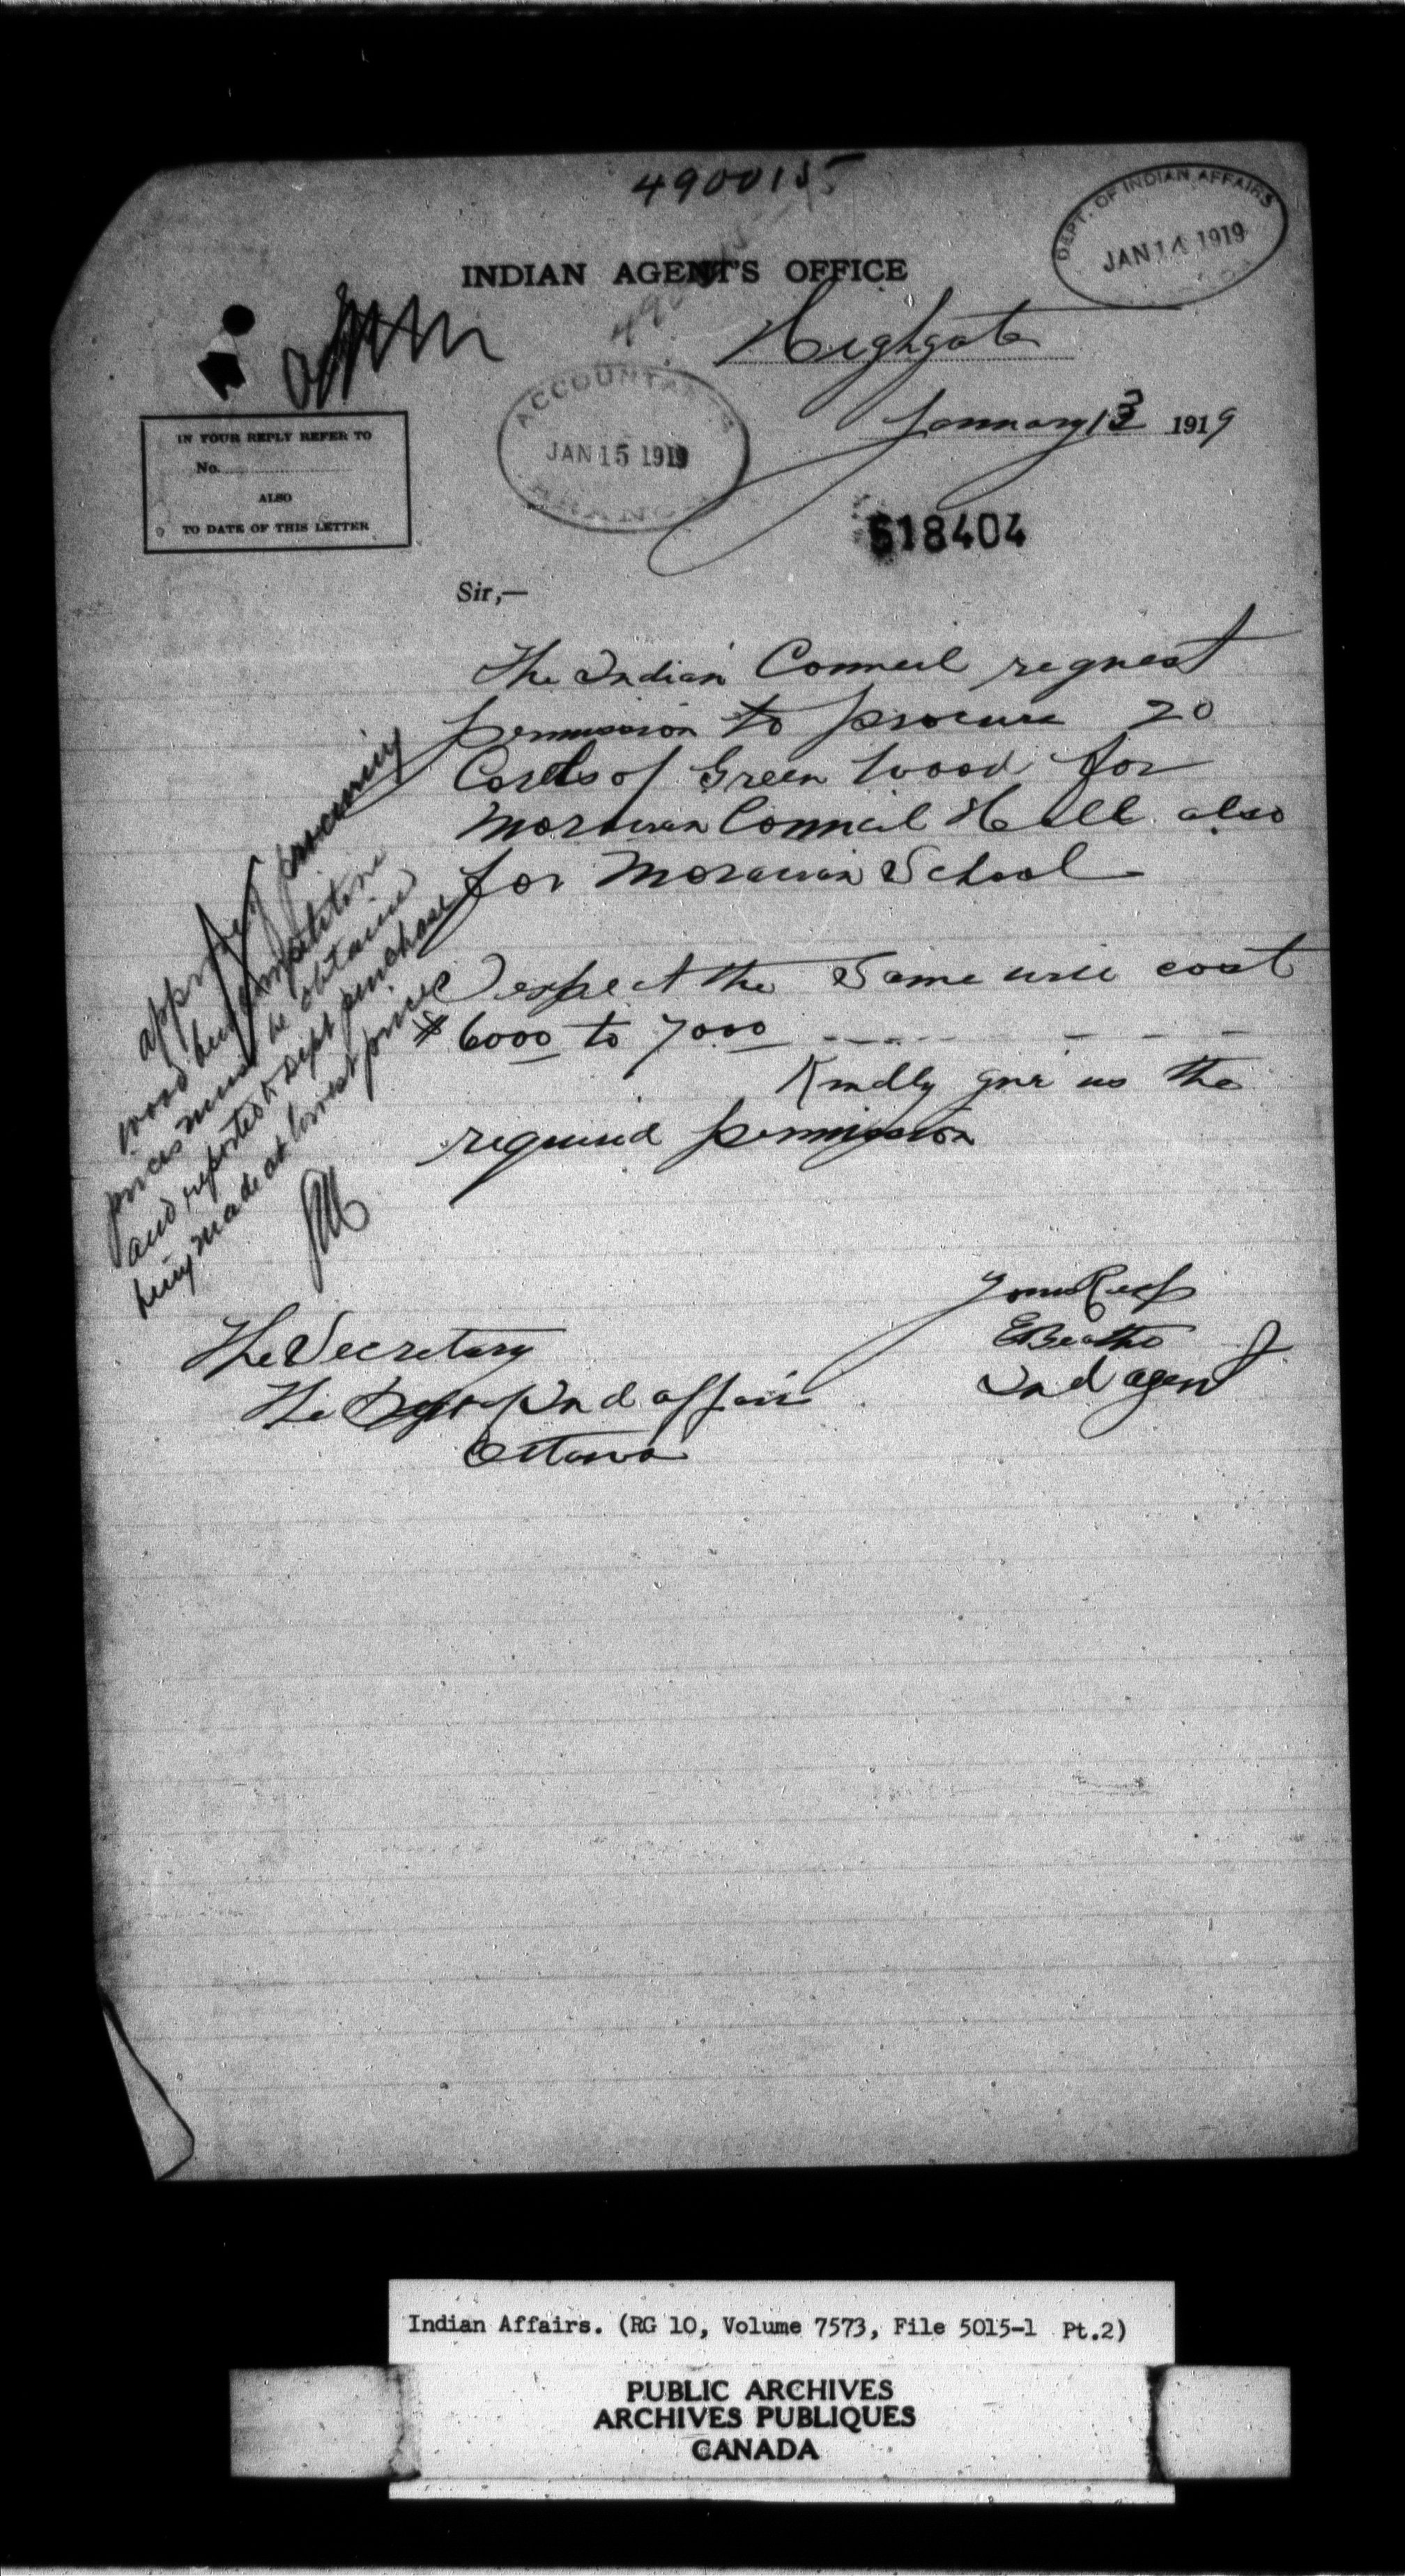 490015
DEPT. OF INDIAN AFFAIRS
JAN 14 1919
INDIAN AGENT'S OFFICE
Highgate
January 13 1919
ACCOUNTANT'S
JAN 15 1919
BRANCH
IN YOUR REPLY REFER TO
No.
ALSO
TO DATE OF THIS LETTER
518404
Sir,—
The Indian Council request
permission to procure 20
Cords of Green Wood for
Moravian Council Hall also
for Moravian School
I expect the Same will cost
$6000 to 7000
Kindly give us the
required permission
approve procuring
wood but competitive
prices must be obtained
and reported to Dept purchase
being made at lowest price
Yours Resp
Ind agent
The Secretary
The Dept of Ind affairs
Ottawa
Indian Affairs. (RG 10, Volume 7573, File 5015-1 Pt.2)
PUBLIC ARCHIVES
ARCHIVES PUBLIQUES
CANADA